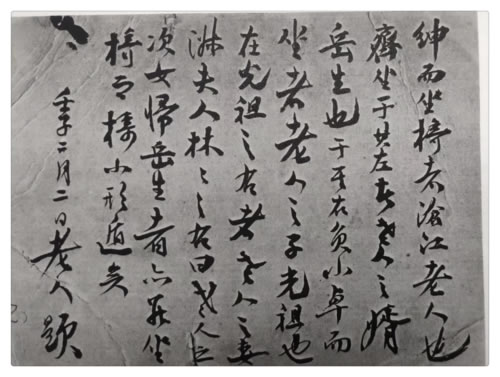 紳而坐椅者滄江老人也
齊坐于其左者老人之婿
岳生也于其右負小卓而
坐者老人之子光祖也
在光祖之右者老人之妻
夫人林之右曰老人
次女帰岳生者亦坐
椅小形遁矣
壬子二月二日老人題